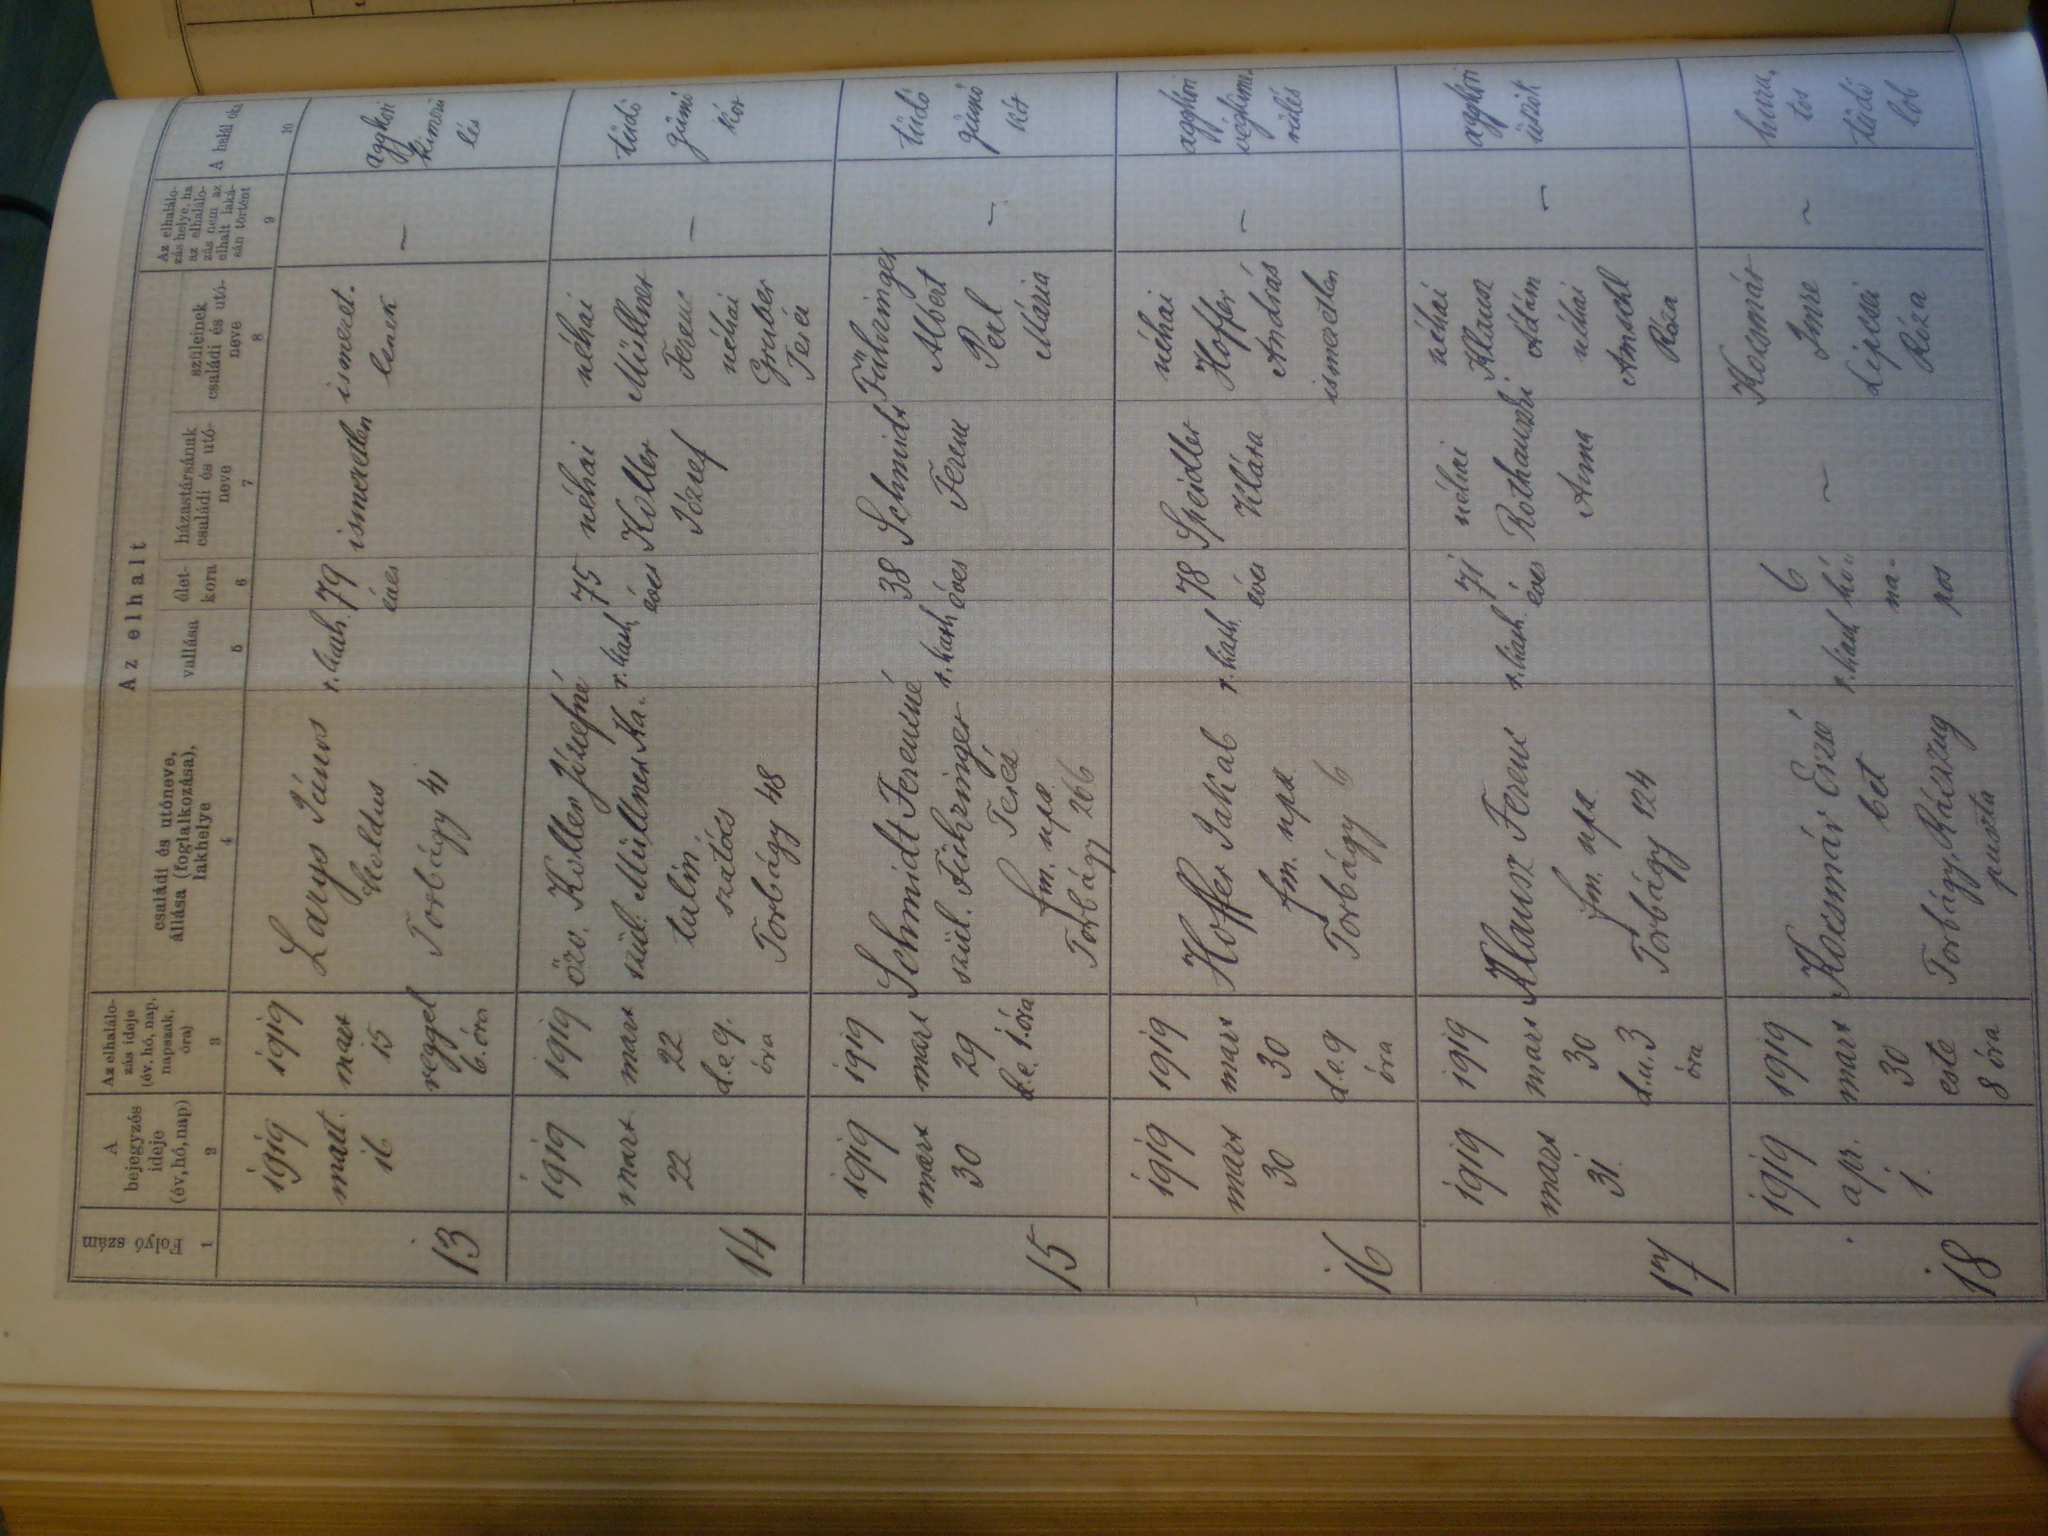 Az elhalt
Folyó szám
A
bejegyzés
ideje
(év, hó, nap)
Az elhalálo-
zás ideje
(év, hó, nap,
napszak,
óra)
családi és utóneve,
állása (foglalkozása),
lakhelye
vallása
élet-
kora
házastársának
családi és utó-
neve
szüleinek
családi és utó-
neve
Az elhalálo-
zás helye, ha
az elhalálo-
zás nem az
elhalt laká-
sán történt
A halál oka
1
2
3
4
5
6
7
8
9
10
13
1919
márt.
16
1919
mart
15
reggel
6. óra
János
koldus
Torbágy 41
r. kath.
79
éves
ismeretlen
ismeret-
lenek
—
aggkori
kimerü
lés
14
1919
mart
22
1919
mart
22
d. e. 9.
óra
özv. Koller Józsefné
szül. Müllner Ka-
talin,
szatócs
Torbágy 48
r. kath.
75
éves
néhai
Koller
József
néhai
Müllner
Ferenc
néhai
Gruber
Teréz
—
tüdő
gümő
kór
15
1919
mart
30
1919
mart
29
d. e. 1. óra
Schmidt Ferencné
szül. Führinger
Teréz
fm. nps.
Torbágy 266
r. kath.
38
éves
Schmidt
Ferenc
Führinger
Albert
Perl
Mária
—
tüdő
gümő
kór
16
1919
mart
30
1919
mart
30
d. e. 9
óra
Hoffer Jakab
fm. nps.
Torbágy 6
r. kath.
78
éves
Speidler
Klára
néhai
Hoffer
András
ismeretlen
—
aggkori
végkime-
rülés
17
1919
mart
31.
1919
mart
30
d. u. 3
óra
Klausz Ferenc
fm. nps.
Torbágy 124
r. kath.
71
éves
néhai
Anna
néhai
Klausz
Ádám
néhai
Amschl
Róza
—
aggkori
18
1919
apr.
1.
1919
mart
30
este
8 óra
Kocsmár Erzsé
bet
Torbágy,
puszta
r. kath.
6
hó-
na-
pos
—
Kocsmár
Imre
Lipcsei
Róza
—
huru-
tos
tüdő
lob